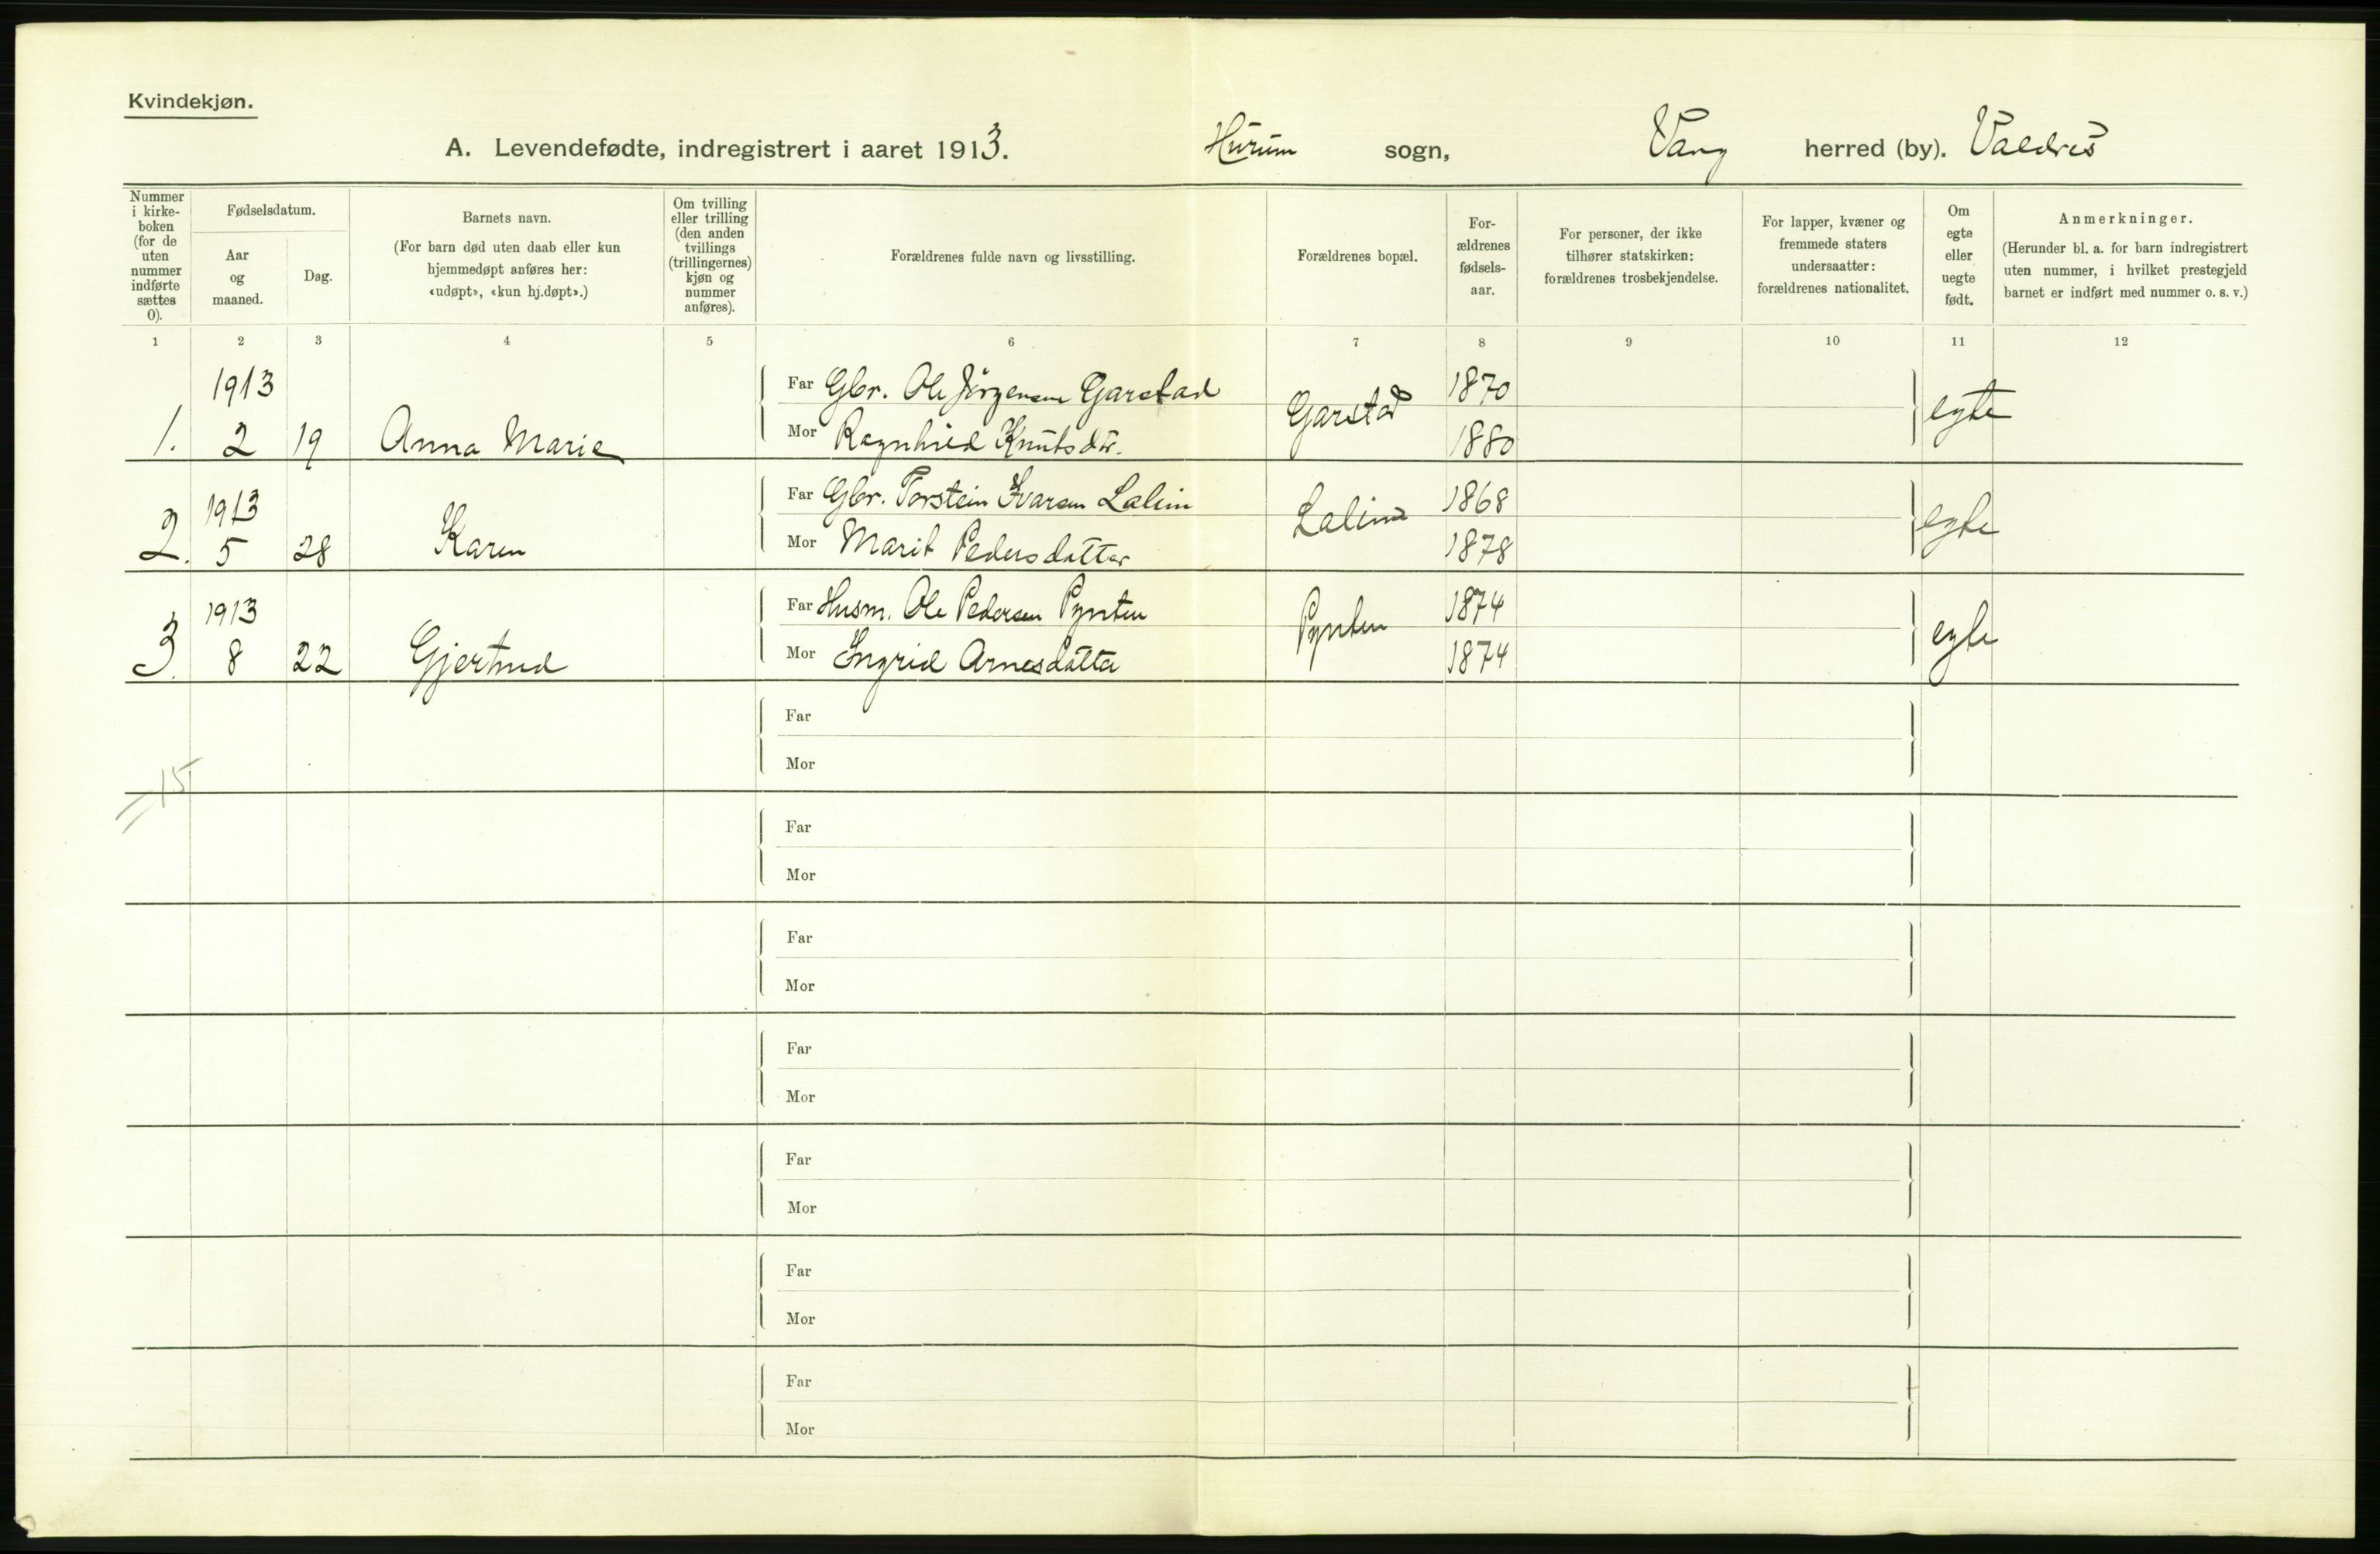 Kvindekjøn.
A. Levendefødte, indregistrert i aaret 1913. Hurum sogn, Vang herred (by). Valdres
Nummer i kirke-boken (for de uten nummer indførte sættes 0).
Fødselsdatum.
Aar og maaned.
Dag.
Barnets navn.
(For barn død uten daab eller kun hjemmedøpt anføres her: «udøpt», «kun hj.døpt».)
Om tvilling eller trilling (den anden tvillings (trillingernes) kjøn og nummer anføres).
Forældrenes fulde navn og livsstilling.
Forældrenes bopæl.
For-ældrenes fødsels-aar.
For personer, der ikke tilhører statskirken: forældrenes trosbekjendelse.
For lapper, kvæner og fremmede staters undersaatter: forældrenes nationalitet.
Om egte eller uegte født.
Anmerkninger.
(Herunder bl. a. for barn indregistrert uten nummer, i hvilket prestegjeld barnet er indført med nummer o. s. v.)
1 2 3 4 5 6 7 8 9 10 11 12
1913 Far Gbr. Ole Jörgensen Garstad Garstad 1870 egte
1. 2 19 Anna Marie Mor Ragnhild Knutsdtr. 1880
1913 Far Gbr. Torstein Ivarsen Lalim Lalim 1868 egte
2. 5 28 Karen Mor Marit Pedersdatter 1878
1913 Far Husm. Ole Pedersen Pynten Pynten 1874 egte
3. 8 22 Gjertrud Mor Ingrid Arnesdatter 1874
Far
=15 Mor
Far
Mor
Far
Mor
Far
Mor
Far
Mor
Far
Mor
Far
Mor